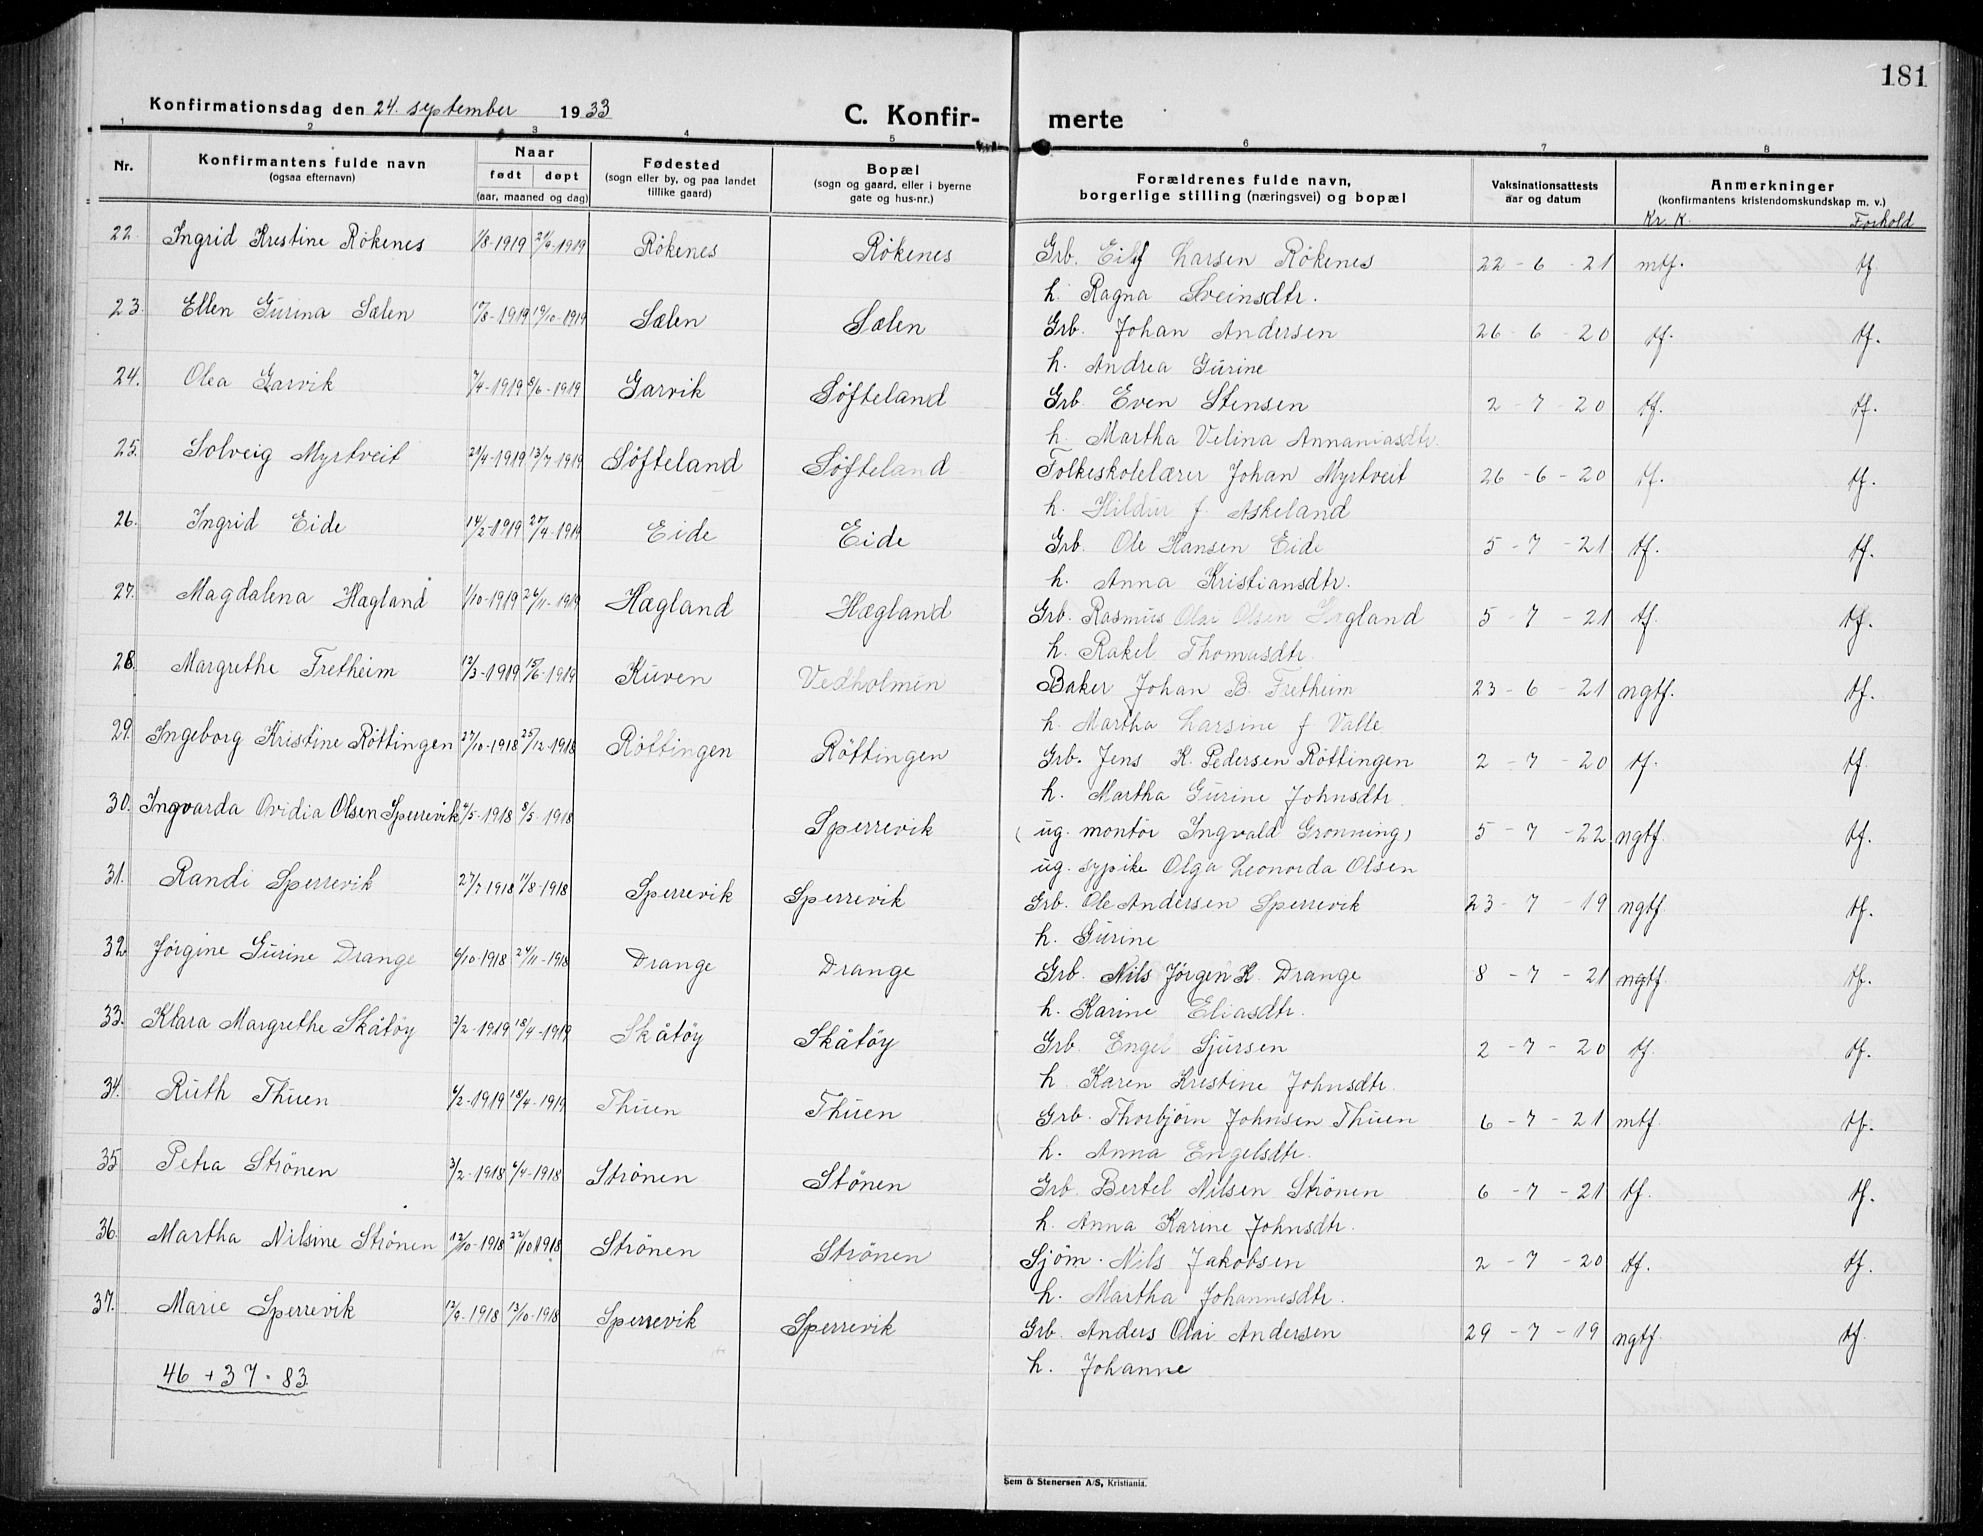 181
Konfirmationsdag den 24. september 1933
C. Konfir- merte
1 2 3 4 5 6 7 8
Nr.
Konfirmantens fulde navn
(ogsaa efternavn)
Naar
født døpt
(aar, maaned og dag)
Fødested
(sogn eller by, og paa landet
tillike gaard)
Bopæl
(sogn og gaard, eller i byerne
gate og hus-nr.)
Forældrenes fulde navn,
borgerlige stilling (næringsvei) og bopæl
Vaksinationsattests
aar og datum
Anmerkninger
(konfirmantens kristendomskundskap m. v.)
Kr. K. Forhold
22. Ingrid Krestine Rökenes 1/8-1919 21/9-1919 Rökenes Rökenes Grb. Eilif Larsen Rökenes 22-6-21 mtf. tf.
h. Ragna Sveinsdtr.
23. Ellen Gurina Sælen 17/8-1919 19/10-1919 Sælen Sælen Grb. Johan Andersen 26-6-20 tf. tf.
h. Andrea Gurine
24. Olea Garvik 7/4-1919 8/6-1919 Garvik Söfteland Grb. Even Stensen 2-7-20 tf. tf.
h. Martha Velina Annaniasdtr.
25. Solveig Myrtveit 20/4-1919 13/7-1919 Söfteland Söfteland Folkeskolelærer Johan Myrtveit 26-6-20 tf. tf.
h. Hildur f. Askeland
26. Ingrid Eide 14/2-1919 27/4-1919 Eide Eide Grb. Ole Hansen Eide 5-7-21 tf. tf.
h. Anna Kristiansdtr.
27. Magdalena Hægland 1/10-1919 26/11-1919 Hægland Hægland Grb. Rasmus Olai Olsen Hægland 5-7-21 tf. tf.
h. Rakel Thomasdtr.
28. Margrethe Fretheim 12/3-1919 15/6-1919 Kuven Vedholmen Baker Johan B. Fretheim 23-6-21 ngtf. tf.
h. Martha Larsine f Valle
29. Ingeborg Kristine Röttingen 27/10-1918 25/12-1918 Röttingen Röttingen Grb. Jens K. Pedersen Röttingen 2-7-20 tf. tf.
h. Martha Gurine Johnsdtr.
30. Ingvarda Ovidia Olsen Sperrevik 4/5-1918 8/5-1918 Sperrevik (ug. montör Ingvald Grønning) 5-7-22 ngtf. tf.
ug. sypike Olga Leonarda Olsen
31. Randi Sperrevik 27/7 1918 11/8-1918 Sperrevik Sperrevik Grb. Ole Andersen Sperrevik 23-7-19 ngtf tf.
h. Gurine
32. Jörgine Gurine Drange 6/10-1918 24/11-1918 Drange Drange Grb. Nils Jörgen K. Drange 8-7-21 ngtf. tf.
h. Karine Eliasdtr.
33. Klara Margrethe Skåtöy 2/2-1919 18/4-1919 Skåtöy Skåtöy Grb. Engel Sjursen 2-7-20 tf. tf.
h. Karen Krestine Johnsdtr.
34. Ruth Thuen 6/2-1919 18/4-1919 Thuen Thuen Grb. Thorbjörn Johnsen Thuen 6-7-21 mtf. tf.
h. Anna Engelsdtr.
35 Petra Strönen 3/2-1918 6/4-1918 Strönen Stönen Grb. Bertel Nilsen Strönen 6-7-21 tf. tf.
h. Anna Karine Johnsdtr.
36. Martha Nilsine Strönen 12/10-1918 22/10 1918 Strönen Strönen Sjöm. Nils Jakobsen 2-7-20 tf. tf.
h. Martha Johannesdtr.
37. Marie Sperrevik 12/9-1918 13/10-1918 Sperrevik Sperrevik Grb. Anders Olai Andersen 29-7-19 ngtf. tf.
h. Johanne
46 + 37 = 83
Sem & Stenersen A/S, Kristiania.